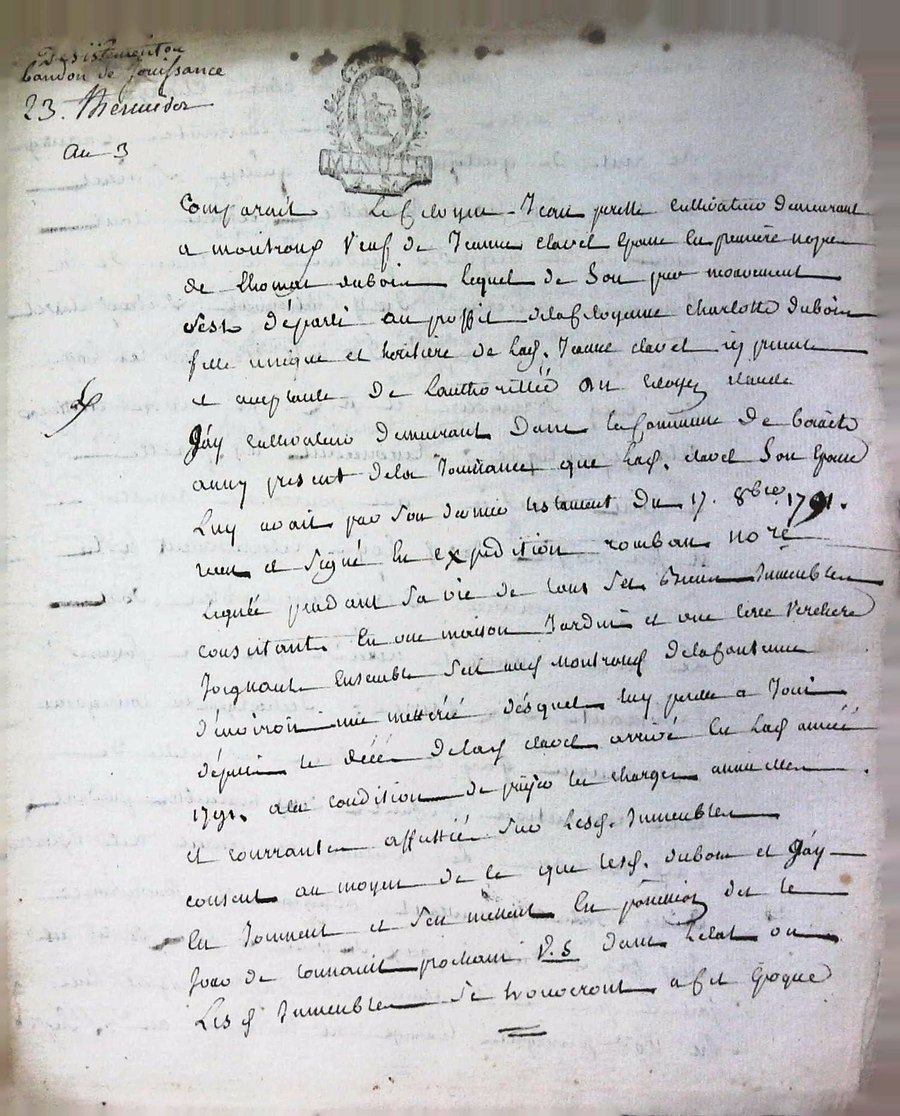 Desistement ou
bandon de Jouissance
23. thermidor
an 3
MINUTE
Comparait Le Citoyen Jean cultivateur demeurant
a veuf de Jeanne clavel Epouse En premiere nopce
de thomas dubois Lequel de Son pur mouvement
s'est départi au proffit de la Citoyenne charlotte dubois
fille unique et heritiere de lad. Jeanne clavel icy presente
et acceptante de L'authorité du citoyen claude
Gáy cultivateur demeurant dans la Commune de
aussy présent de la Jouissance que lad. clavel Son Epouse
Luy avait par Son dernier testament du 17. 8bre 1791.
recu et Signé En expedition romban nore
Legué pendant Sa vie de tous Ses Biens Immeubles
consistants En une maison Jardin et une terre Verchere
Joignants Ensemble Scit aud de la Contenue
d'environ une metterée désquels Luy a Joui
dépuis le décés de lad clavel arrivé En lad année
1791. a la condition de payer les charges annuelles
et courrantes affectées Sur Lesd. Immeubles
consent au moyen de ce que lesd. dubois et Gáy
En Jouissent et S'en mettent En possession dez le
Jour de prochain V.S dans L'etat ou
Lesd Immeubles Se trouveront a cet Epoque